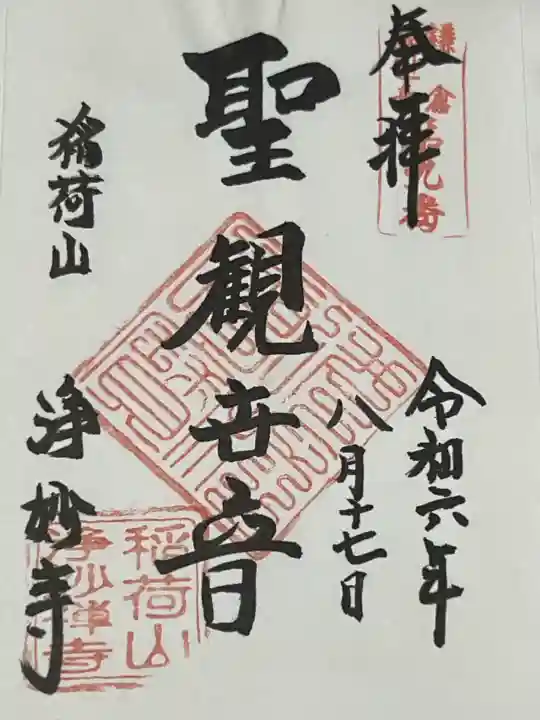 奉拝
令和六年
八月十七日
聖観世音
稲荷山
浄妙寺
稲荷山
浄妙禅寺